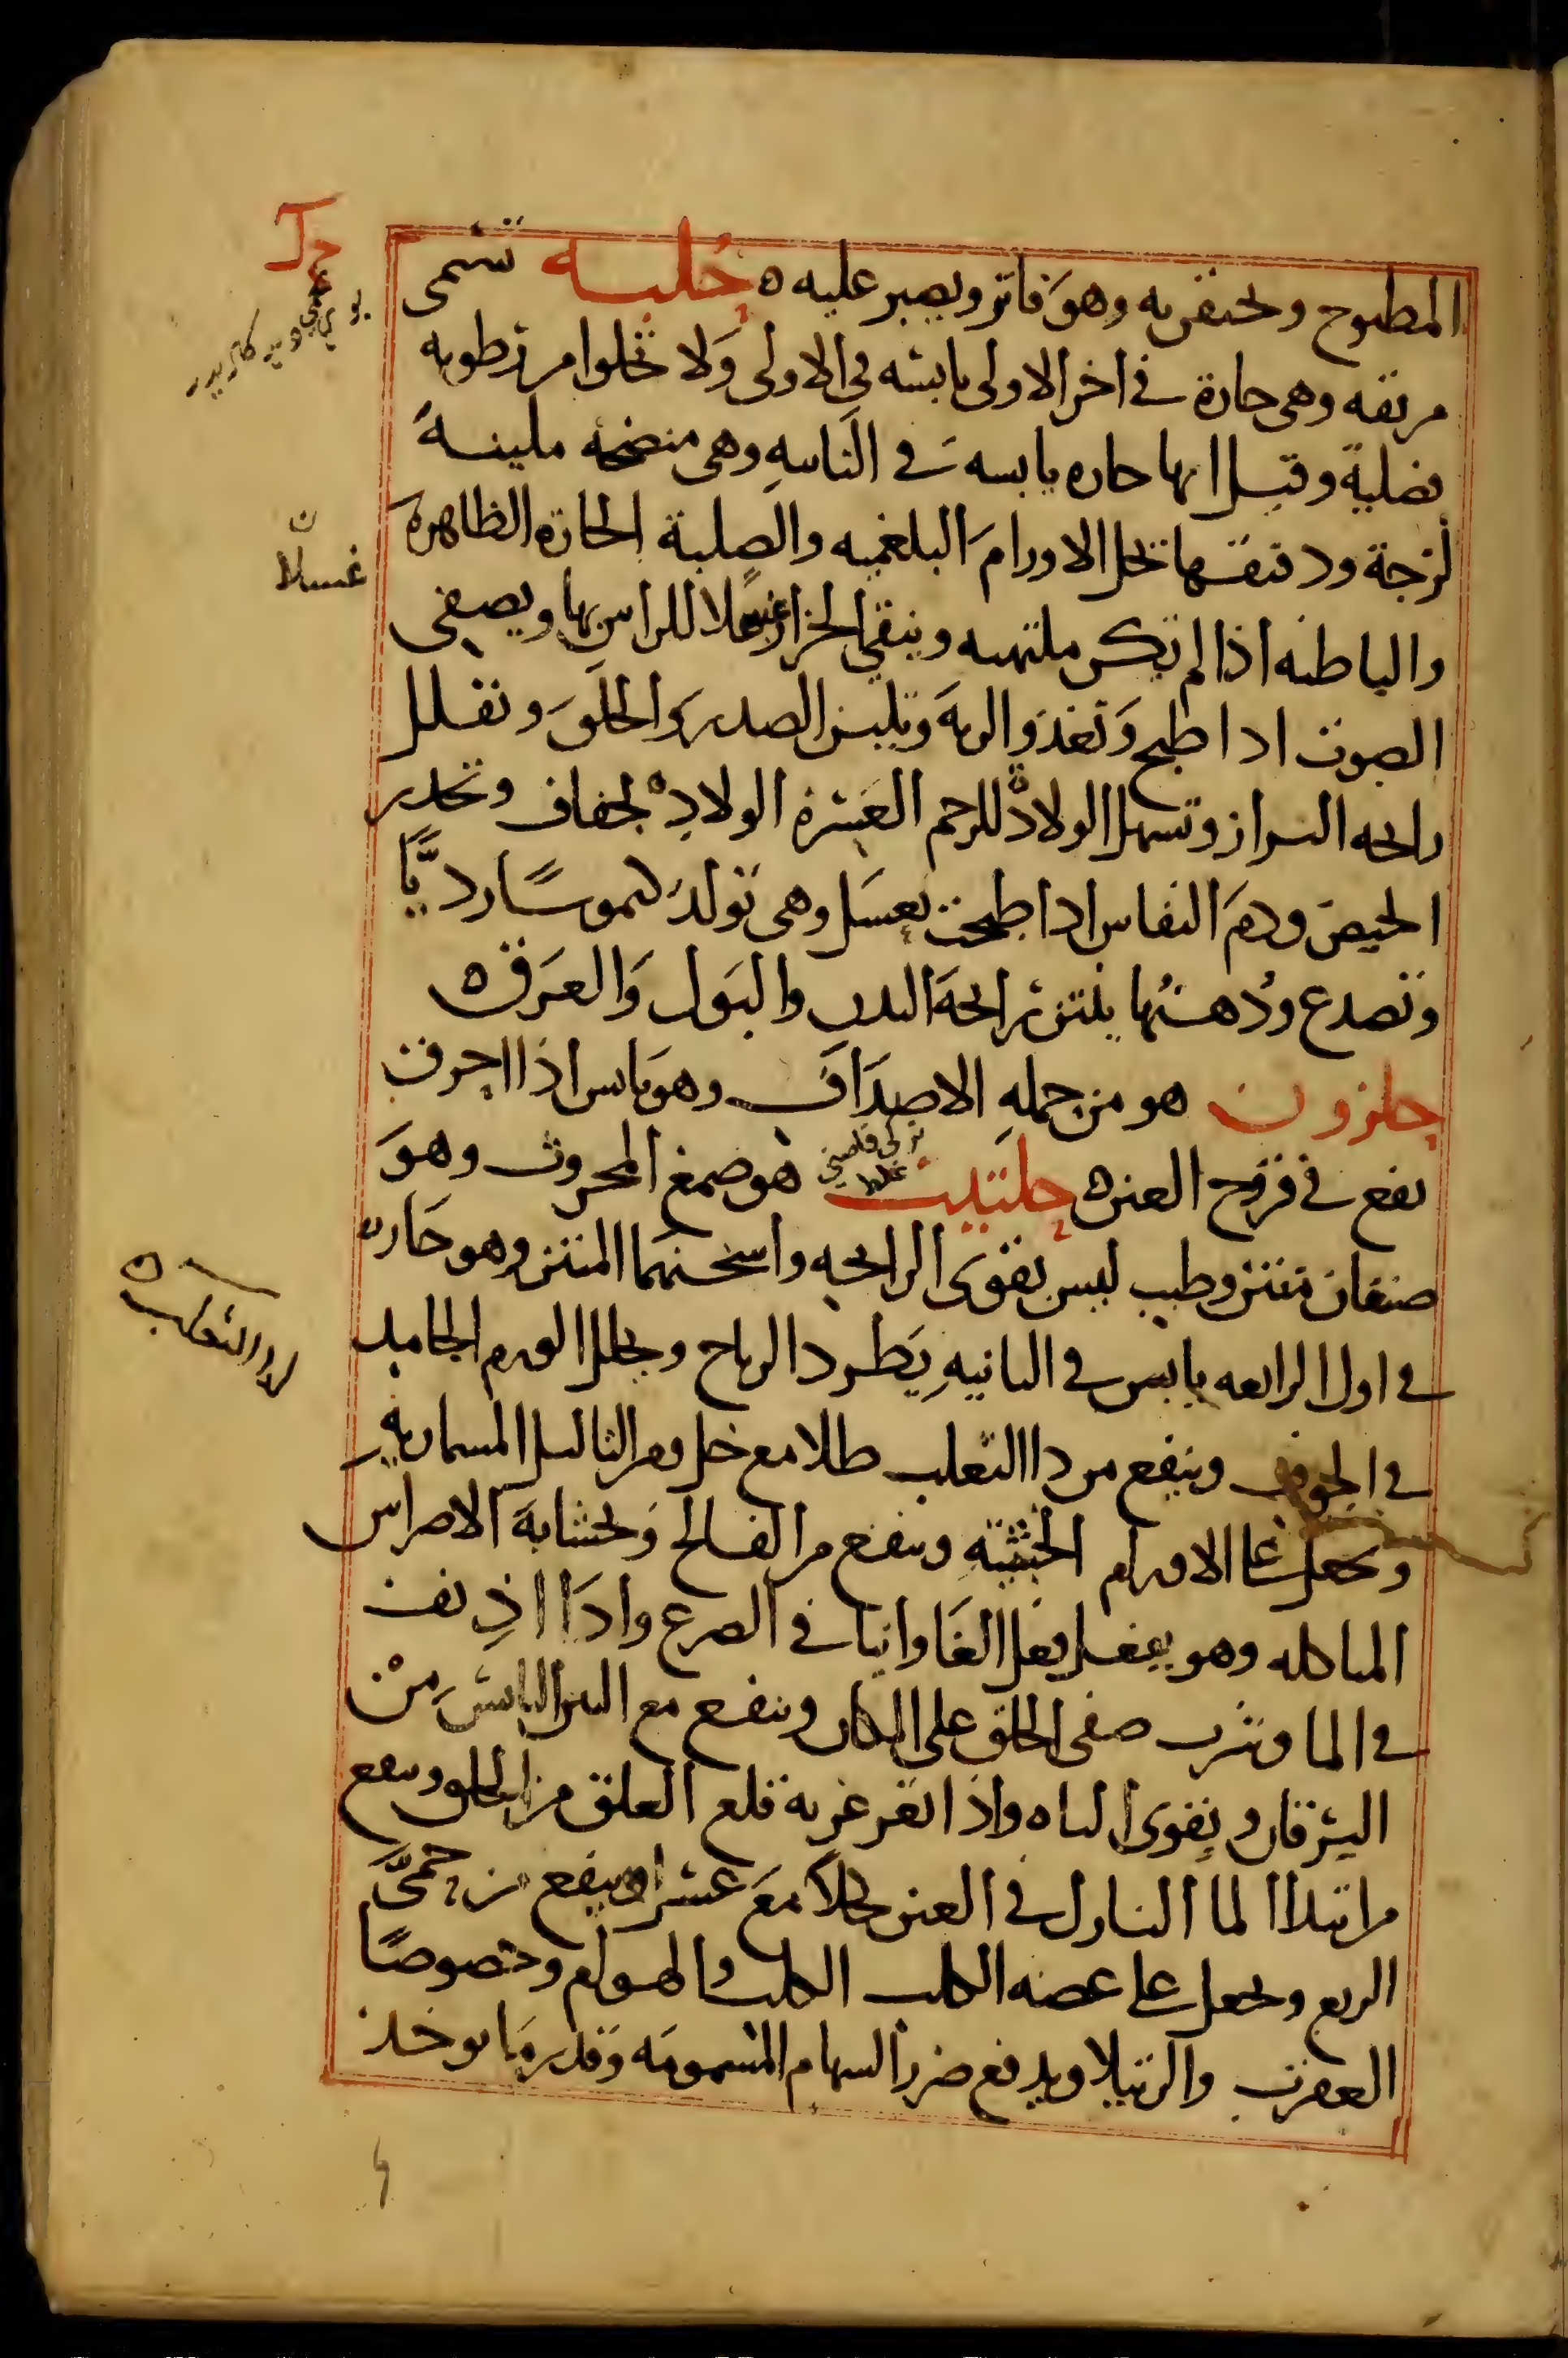 المطبوخ ويحتقن به وهو فاتر ويصبر عليه ه حلبه تسمى
مريقه وهي حارة في اخر الاولى يابسه في الاولى ولا تخلوا من رطوبه
فضلية وقيل انها حاره يابسه في الثانيه وهي منضجه ملينة
لزجة ودقيقها يحلل الاورام البلغميه والصلبة الحارة الظاهرة
والباطنه اذا لم تكن ملتهبه وينقي الحزاز غسلا للراس بها ويصفي
الصوت اذا طبخ وتغذو الريه وتلين الصدر والحلق وتقلل
رايحه البراز وتسهل الولادة للرحم العسرة الولادة لجفاف وتحدر
الحيض ودم النفاس اذا طبخت بعسل وهي تولد كيموسا رديًّا
وتصدع ودهنها ينتن رايحة البدن والبول والعرق ه
حلزون هو من جمله الاصداف وهو يابس اذا احرق
نفع في قروح العين ه حلتيت هو صمغ المحروث وهو
صنفان منتن وطيب ليس بقوى الرايحه واسخنهما المنتن وهو حار
في اول الرابعه يابس في الثانيه يطرد الرياح ويحلل الورم الجامد
في الجوف وينفع من دا الثعلب طلا مع خل ومن الثاليل المسماريه
ويجعل على الاورام الخبيثة وينفع من الفالج وبحشابه الاضراس
المتاكله وهو يفعل فعل الفاوانيا في الصرع واذا اذيف
في الما وشرب صفى الحلق على المكان وينفع مع التين اليابس من
اليرقان ويقوى الباه واذا تغرغر به قلع العلق من الحلق وينفع
من ابتدا الما النازل في العين كحلا مع عسل وينفع من حمى
الربع ويجعل على عضه الكلب الكلب والهوام وخصوصًا
العقرب والرتيلا ويدفع ضرر السهام المسمومه وقدر ما يوخذ
غسلا
ن
لدا الثعلب